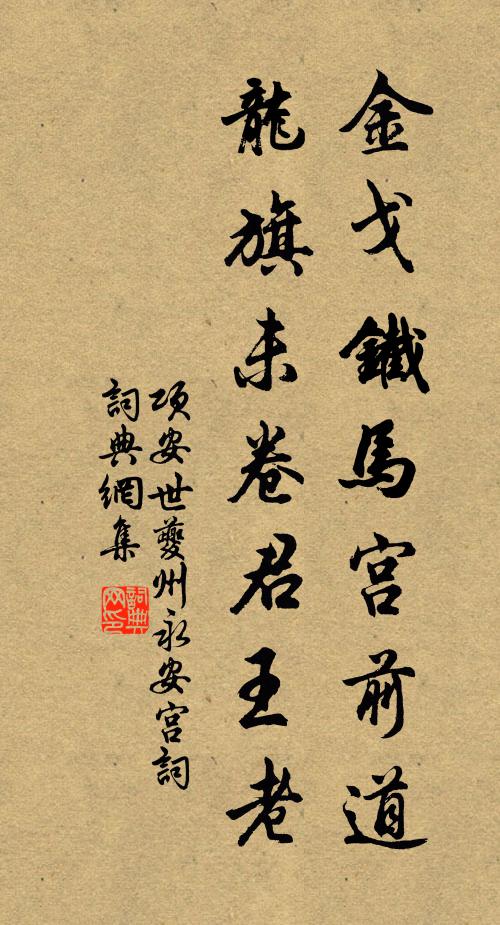 金戈鐵馬宮前道
龍旗未卷君王老
項安世夔州永安宮詞
詞典網集
詞典
网印